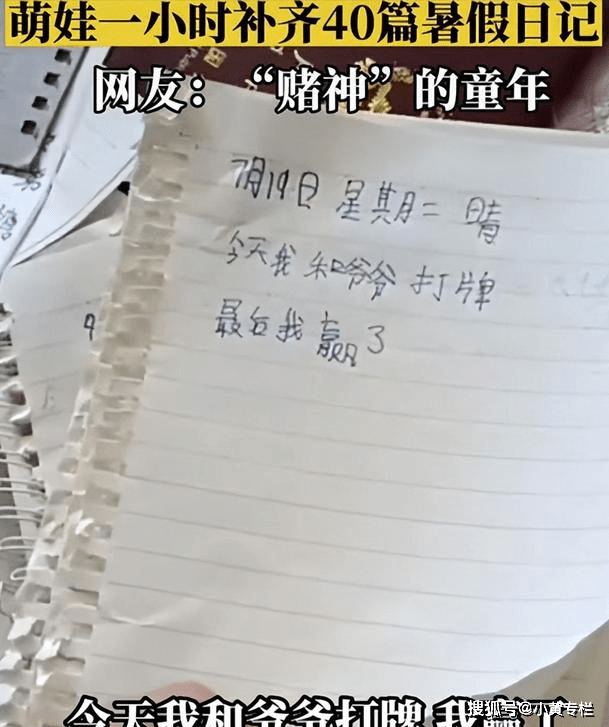 萌娃一小时补齐40篇暑假日记
网友：“赌神”的童年
7月19日 星期二 晴
今天我和爷爷打牌
最后我赢了
今天我和爷爷打牌 我
搜狐号@小黄专栏